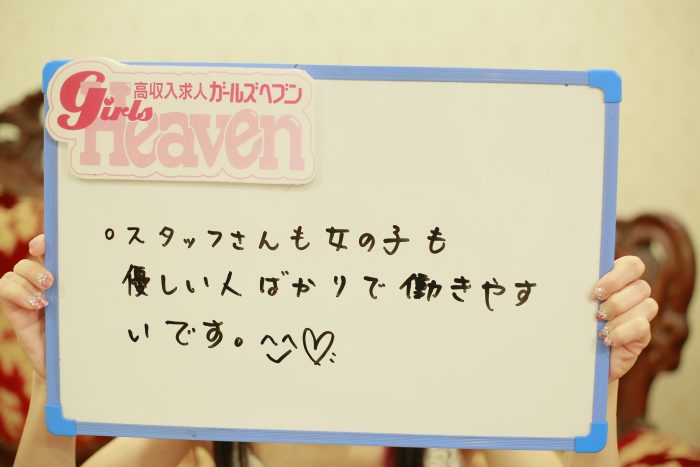 高収入求人ガールズヘブン
Girls
Heaven
○スタッフさんも女の子も
優しい人ばかりで働きやす
いです。^‿^♡